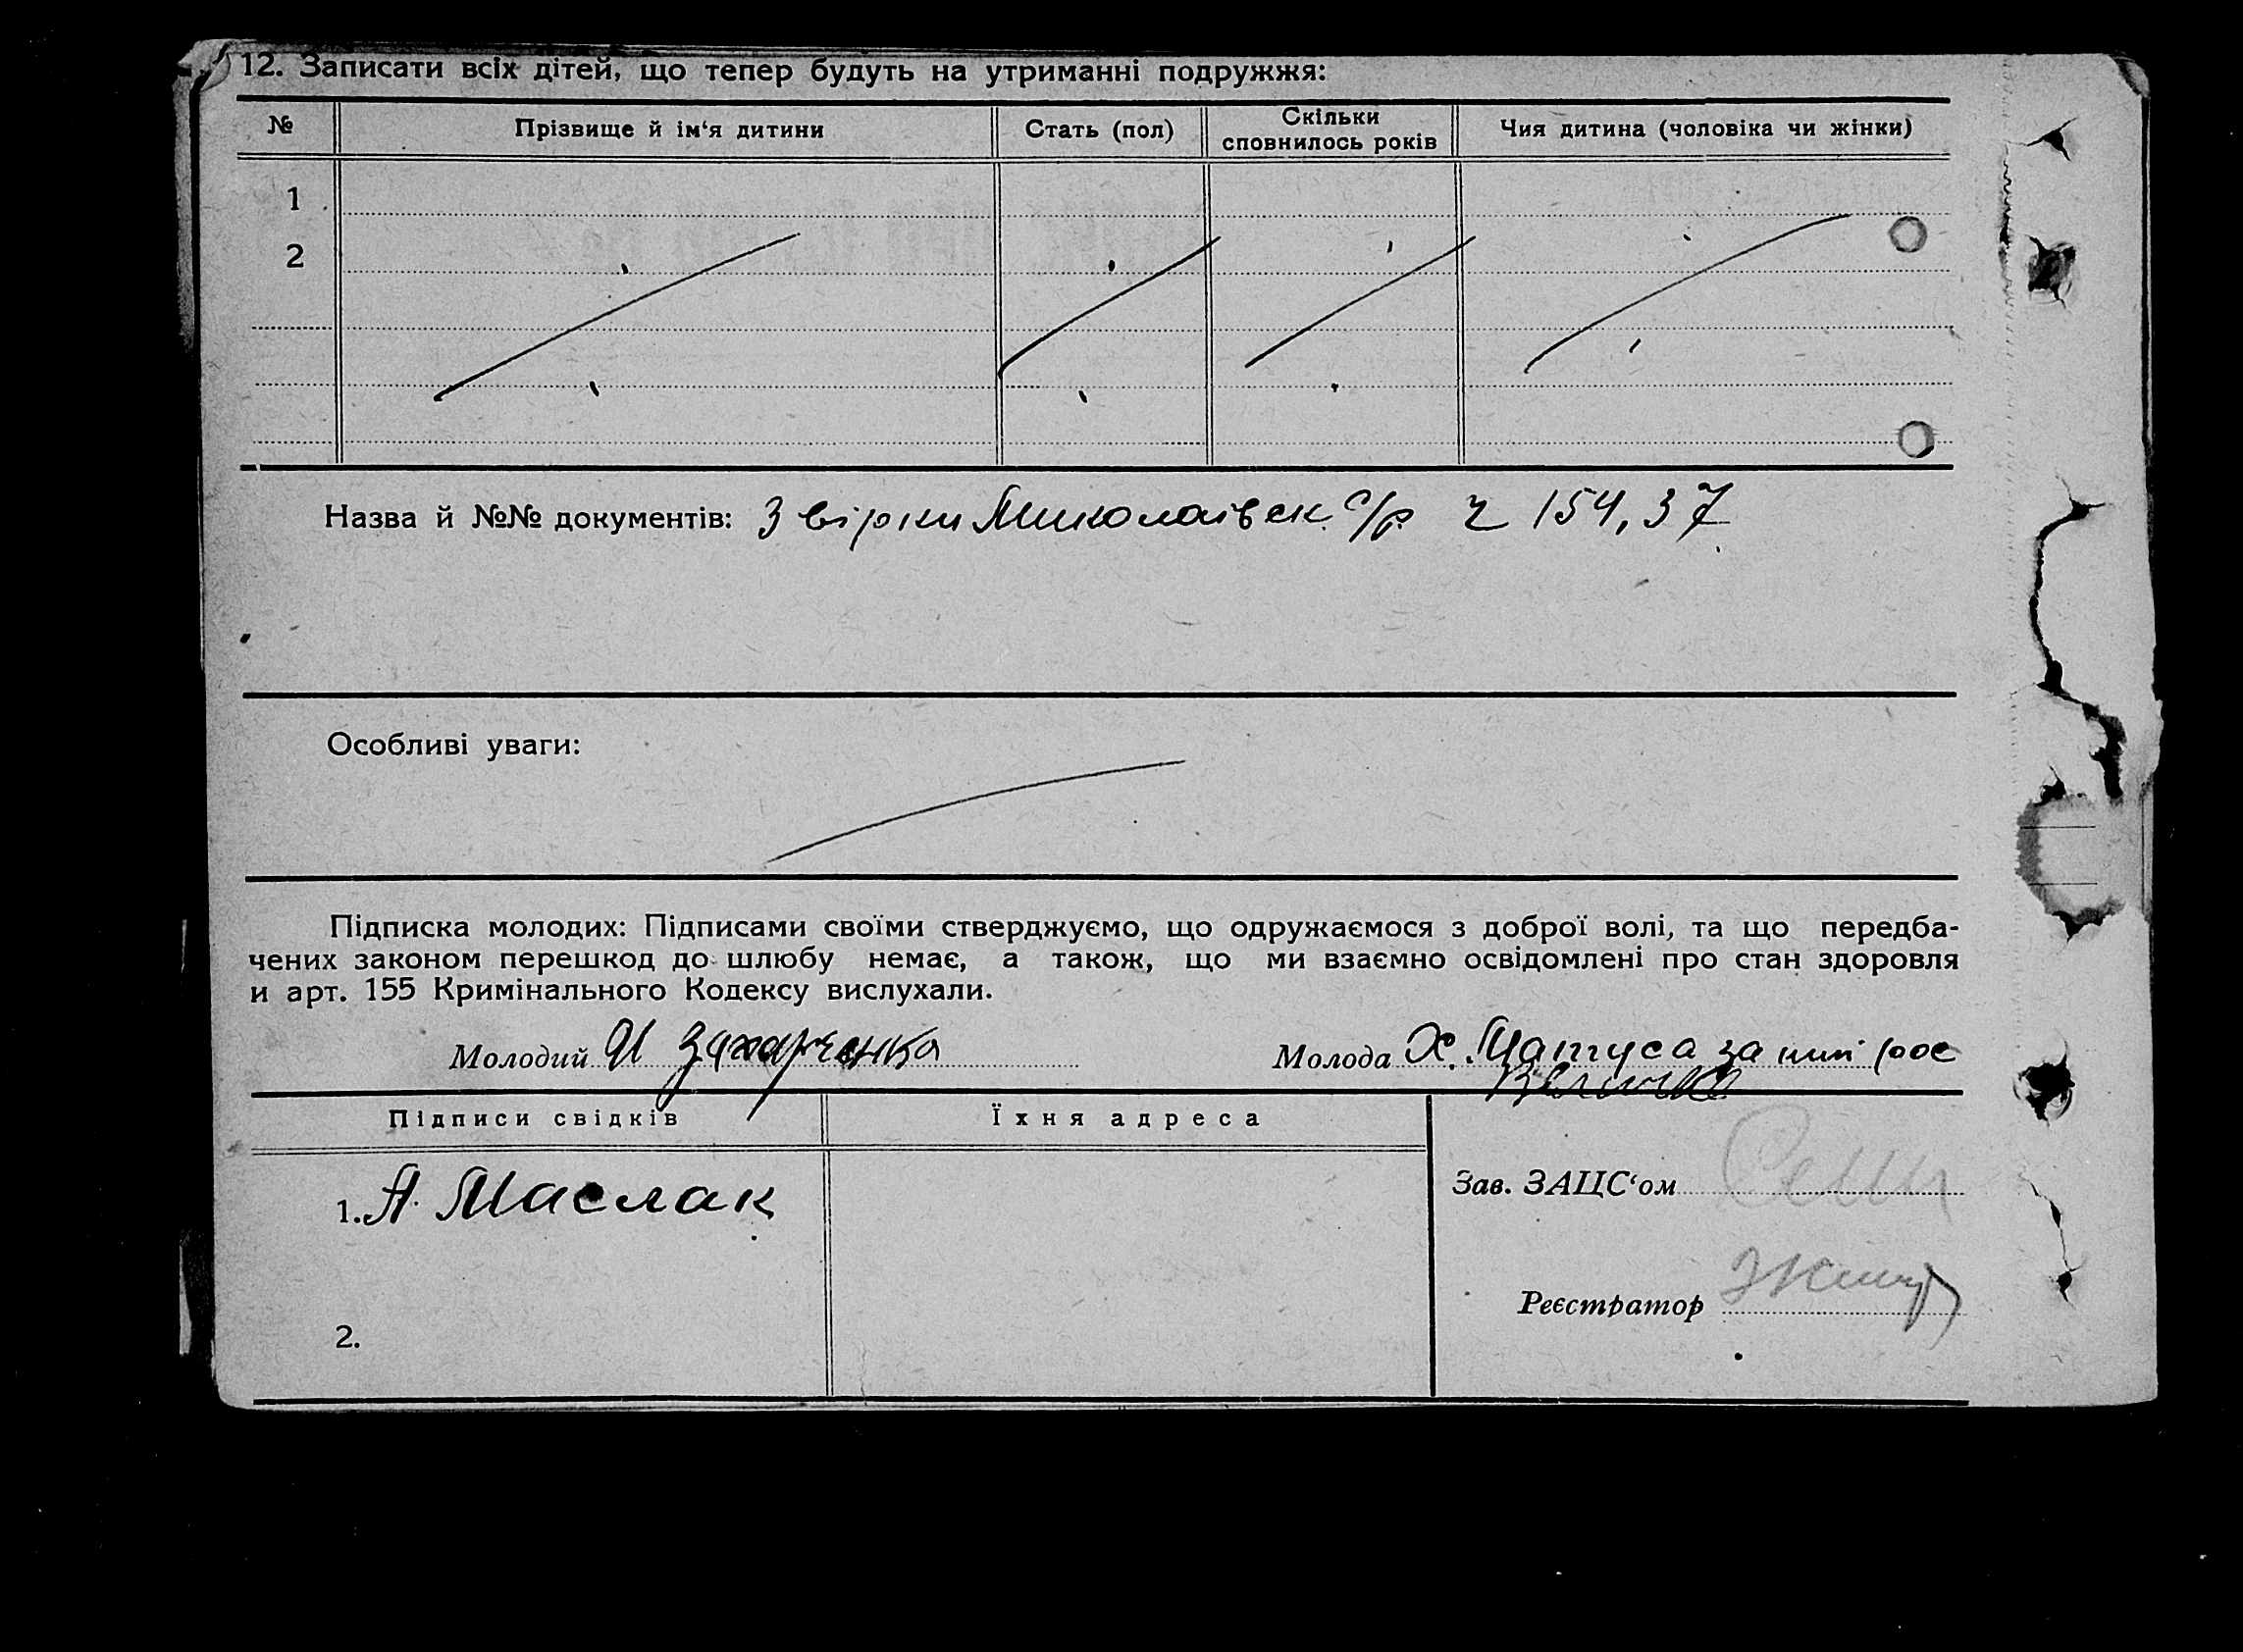 12. Записати всіх дітей, що тепер будуть на утриманні подружжя:
№ Прізвище й ім‘я дитини Стать (пол) Скільки сповнилось років Чия дитина (чоловіка чи жінки)
1
2
Назва й №№ документів: Звірки Миколаівск. с/р ч 154, 37
Особливі уваги:
Підписка молодих: Підписами своїми стверджуємо, що одружаємося з доброї волі, та що передба-
чених законом перешкод до шлюбу немає, а також, що ми взаємно освідомлені про стан здоровля
и арт. 155 Кримінального Кодексу вислухали.
Молодий И Захарченко Молода Х. за
Підписи свідків Їхня адреса
1. А. Маслак
Зав. ЗАЦС‘ом
Реєстратор
2.